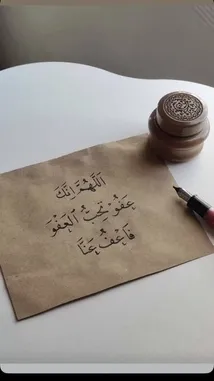 اَللّٰهُمَّ اِنَّكَ
عَفُوٌّ تُحِبُّ الْعَفْوَ
فَاعْفُ عَنَّا